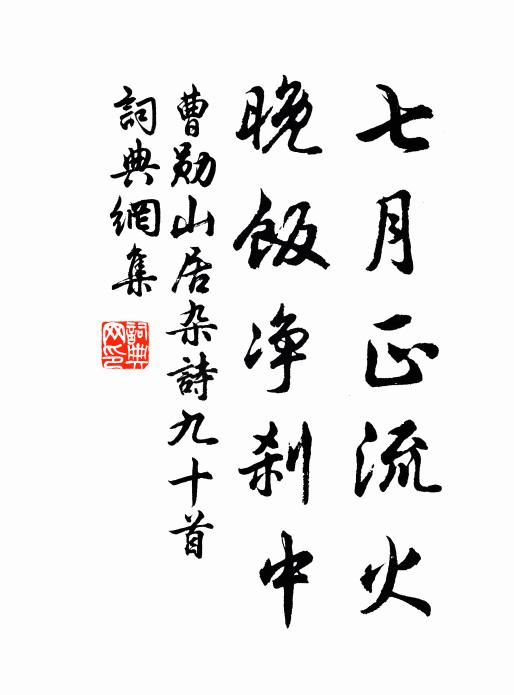 七月正流火
晚飯净刹中
曹勛山居杂詩九十首
詞典網集
詞典網印